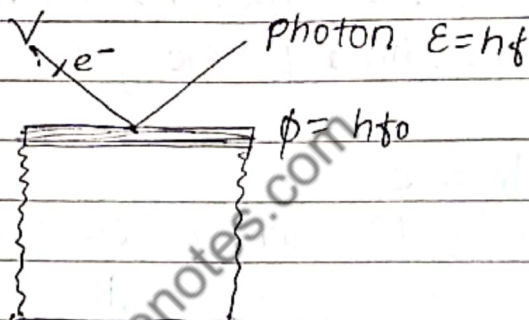 v
photon ε=hf
e⁻
ϕ= hf₀
enotes.com